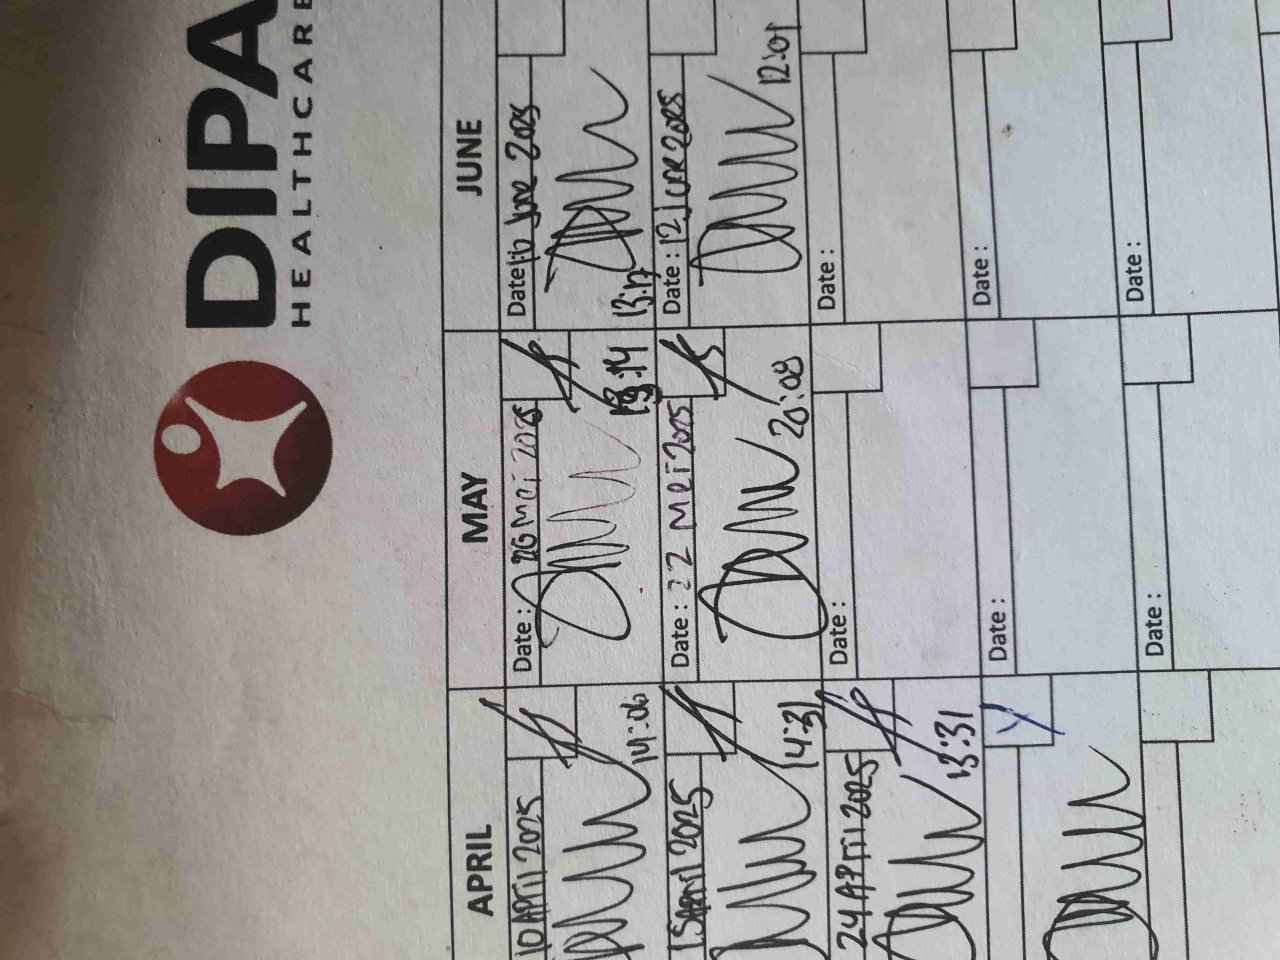 DIPA
HEALTHCARE
APRIL
MAY
JUNE
10 APril 2025
14:06
Date : 06 Mei 2025
13:14
Date : 10 June 2025
13:17
15 April 2025
14:31
Date : 22 Mei 2025
20:08
Date : 12 June 2025
12:01
24 APril 2025
13:31
Date :
Date :
Date :
Date :
Date :
Date :